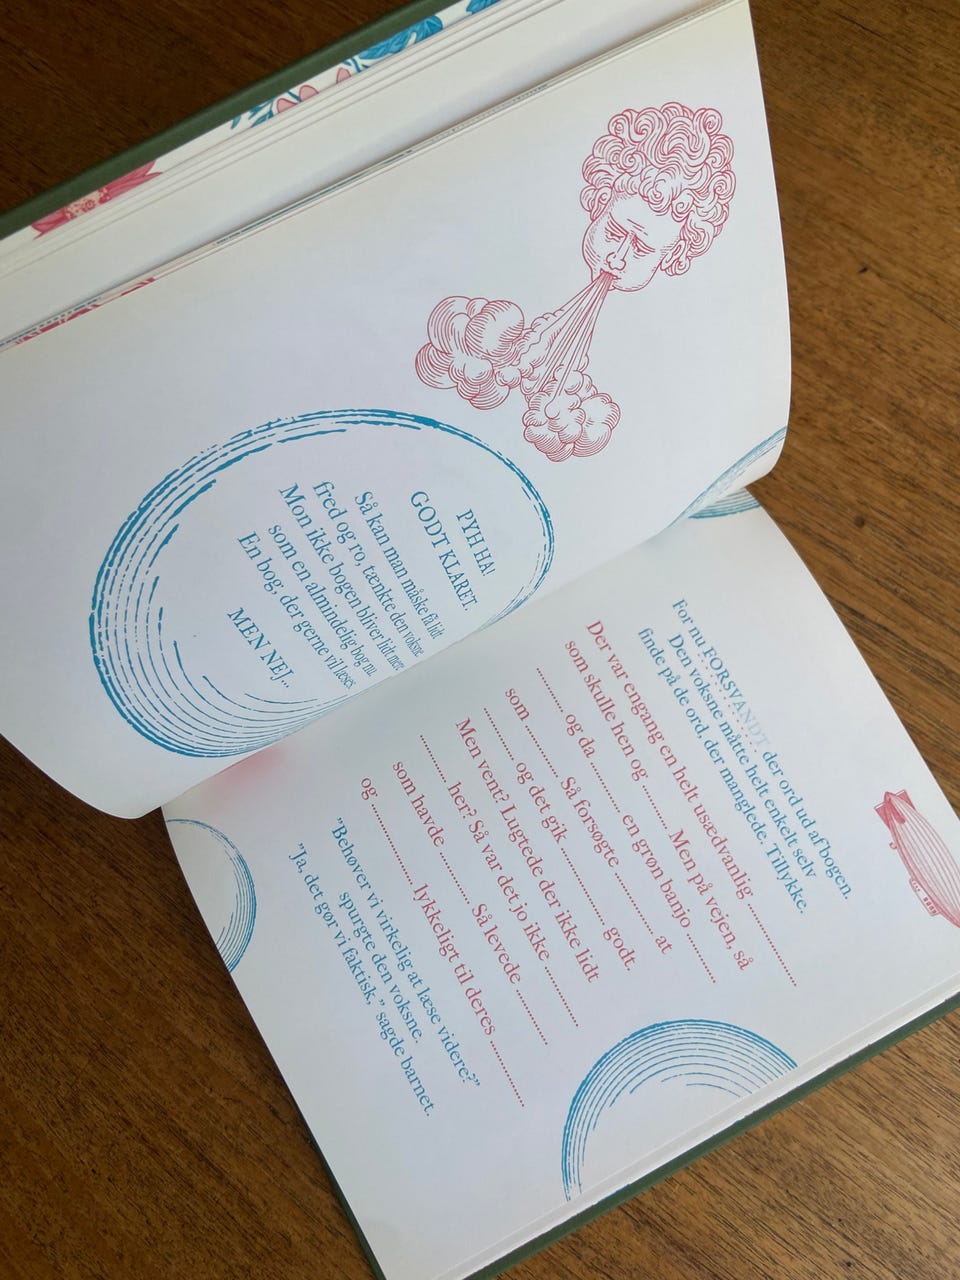 PYH HA!
GODT KLARET.
Så kan man måske få lidt
fred og ro, tænkte den voksne.
Mon ikke bogen bliver lidt mere
som en almindelig bog nu.
En bog, der gerne vil læses
MEN NEJ...
For nu FORSVANDT der ord ud af bogen.
Den voksne måtte helt enkelt selv
finde på de ord, der manglede. Tillykke.
Der var engang en helt usædvanlig ....................
som skulle hen og ............ Men på vejen, så
............ og da ................ en grøn banjo ................
som ............ Så forsøgte ................ at
................ og det gik ................ godt.
Men vent? Lugtede der ikke lidt
................ her? Så var det jo ikke ................
som havde ............ Så levede ................
og .................... lykkeligt til deres ....................
”Behøver vi virkelig at læse videre?”
spurgte den voksne.
”Ja, det gør vi faktisk,” sagde barnet.